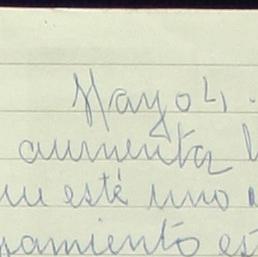 Mayo 4.
aumentar
que esté uno
pamiento es